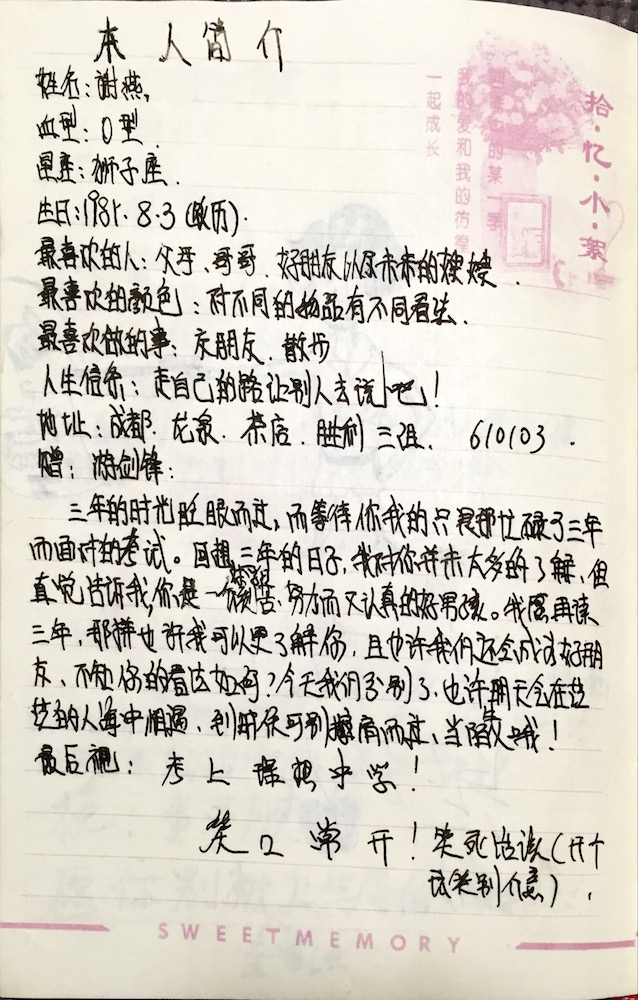 本人简介
姓名：谢燕。
血型：O型.
星座：狮子座.
生日：1985.8.3（阴历）.
最喜欢的人：父母、哥哥、好朋友以及未来的嫂嫂.
最喜欢的颜色：对不同的物品有不同看法.
最喜欢做的事：交朋友.散步
人生信条：走自己的路让别人去说吧！
地址：成都.龙泉.茶店.胜利三组. 610103.
赠：游剑锋：
三年的时光眨眼而过，而等待你我的只是那忙碌了三年
而面对的考试。回想三年的日子，我对你并未太多的了解，但
直觉告诉我，你是一个刻苦、努力而又认真的好男孩。我愿再读
三年，那样也许我可以更了解你，且也许我们还会成为好朋
友、不知你的看法如何？今天我们分别了，也许明天会在茫
茫的人海中相遇，到时候可别擦肩而过、当陌生哦！
最后祝：考上理想中学！
笑口常开！笑死活该（开个
玩笑别介意）.
拾·忆·小·絮
四季中的某一季
我的爱和我的彷徨
一起成长
SWEETMEMORY